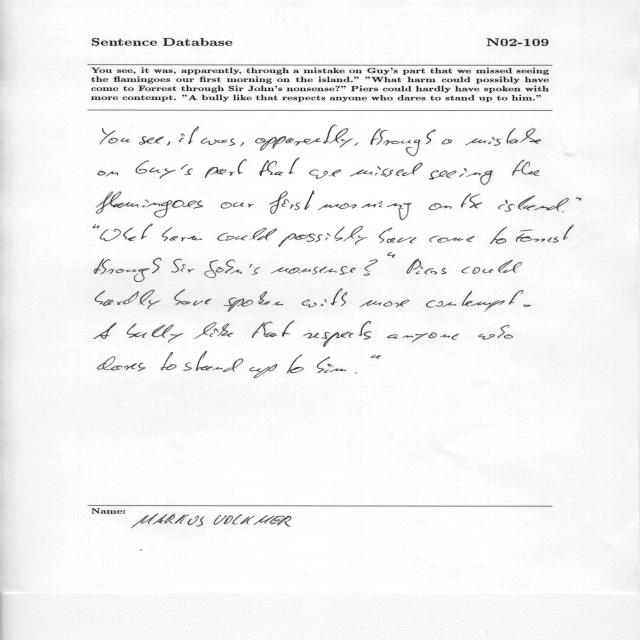 Sentence Database N02-109
You see, it was, apparently, through a mistake on Guy's part that we missed seeing
the flamingoes our first morning on the island." "What harm could possibly have
come to Forrest through Sir John's nonsense?" Piers could hardly have spoken with
more contempt. "A bully like that respects anyone who dares to stand up to him."
You see, it was, apparently, through a mistake
on Guy's part that we missed seeing the
flamingoes our first morning on the island."
"What harm could possibly have come to Forrest
through Sir John's nonsense?" Piers could
hardly have spoken with more contempt.
A bully like that respects anyone who
dares to stand up to him."
Name:
MARKUS VOLKMER